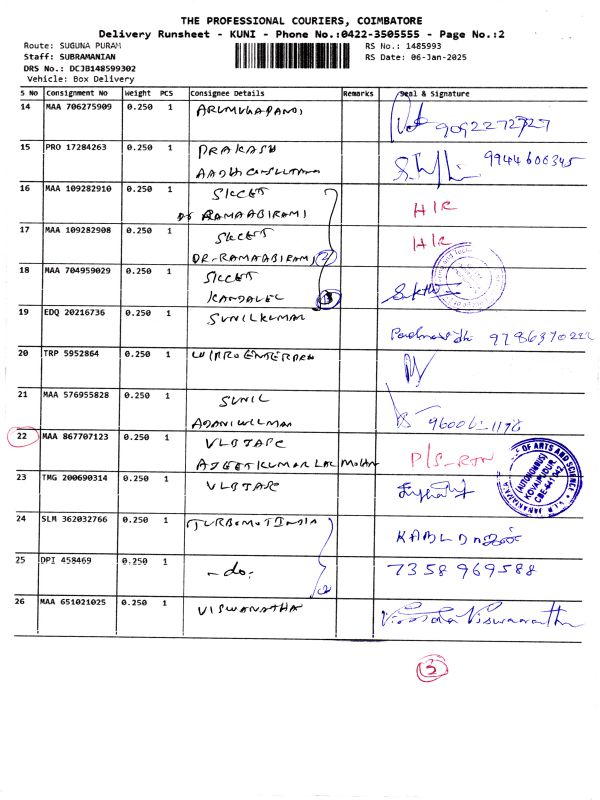 THE PROFESSIONAL COURIERS, COIMBATORE
Delivery Runsheet - KUNI - Phone No.:0422-3505555 - Page No.:2
Route: SUGUNA PURAM
RS No.: 1485993
Staff: SUBRAMANIAN
RS Date: 06-Jan-2025
DRS No.: DCJB148599302
Vehicle: Box Delivery
S No Consignment No Weight PCS Consignee Details Remarks Seal & Signature
14 MAA 706275909 0.250 1 ARUMUGAPANDI
9092272727
15 PRO 17284263 0.250 1 PRAKASH
9944606345
16 MAA 109282910 0.250 1 SKCET
DR RAMAABIRAMI H/R
17 MAA 109282908 0.250 1 SKCET H/R
DR-RAMAABIRAMI 2
18 MAA 704959029 0.250 1 SKCET
19 EDQ 20216736 0.250 1 SUNILKUMAR
9786370222
20 TRP 5952864 0.250 1
21 MAA 576955828 0.250 1 SUNIL
ADANIWILMAR
22 MAA 867707123 0.250 1 VLBJAPC
AJEETKUMAR LAL MOHAN P/S-RTN
OF ARTS AND SCIENCE
(AUTONOMOUS)
KOVAIPUDUR
CBE-641 042
23 TMG 200690314 0.250 1 VLBJAPC
24 SLM 362032766 0.250 1 TURBOMOT INDIA
25 DPI 458469 0.250 1 -do-
7358969588
26 MAA 651021025 0.250 1 VISWANATHA
Viswanatha
3